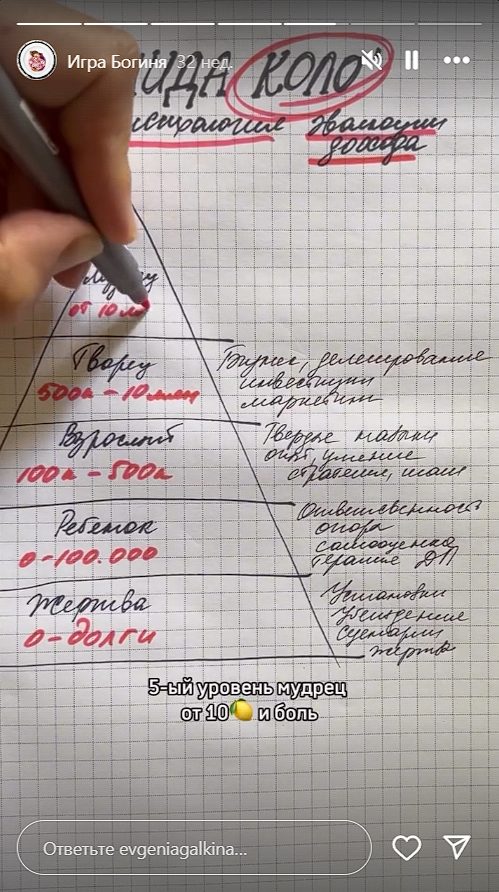 Игра Богиня 32 нед.
ИДА КОЛО
психология эволюции
дохода
Мудрец
от 10 м
Творец
500к – 10 млн
Бизнес, делегирование
инвестиции
маркетинг
Взрослый
100к – 500к
Твердые навыки
опыт, умение
стратегия,
Ребенок
0–100.000
Ответственность
опора
самооценка
терапия
Жертва
0–долги
Установки
Убеждения
сценарии
жертв
5-ый уровень мудрец
от 10🍋 и боль
Ответьте evgeniagalkina...